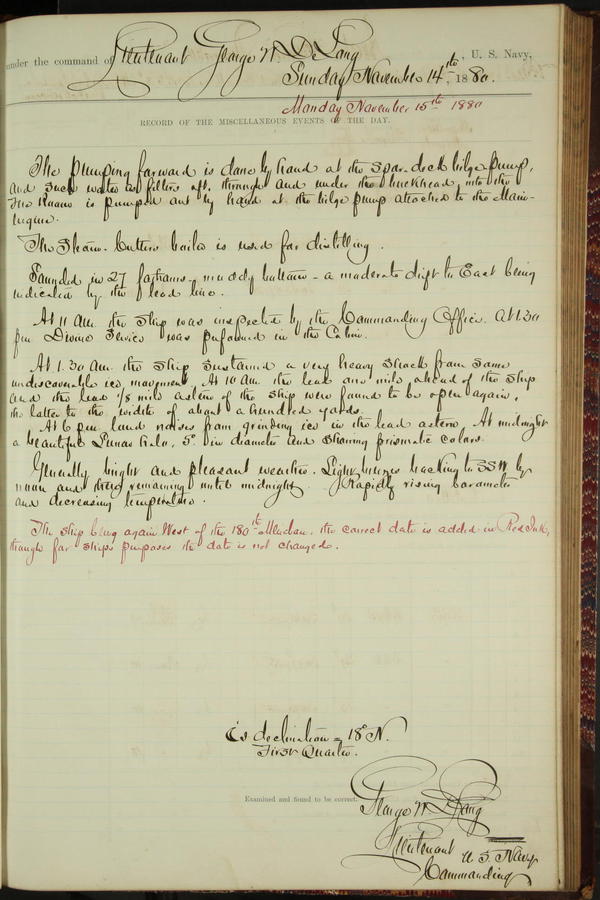 under the command of Lieutenant George W. De Long, U. S. Navy,
Sunday November 14th, 1880.
Monday November 15th 1880
RECORD OF THE MISCELLANEOUS EVENTS OF THE DAY.
The pumping forward is done by hand at the spar deck bilge pump,
and such water as filters aft through and under the bulkhead into the
fire room is pumped out by hand at the bilge pump attached to the Main-
Engine.
The Steam-Cutters boiler is used for distilling.
Sounded in 27 fathoms - muddy bottom - a moderate drift to East being
indicated by the lead line.
At 11 A.M. the ship was inspected by the Commanding Officer. At 1.30
pm Divine Service was performed in the Cabin.
At 1.30 am. the ship sustained a very heavy shock from some
undiscoverable ice movement. At 10 am. the lead one mile ahead of the ship
and the lead 1/8 mile astern of the ship were found to be open again,
the latter to the width of about a hundred yards.
At 6 pm. loud noises from grinding ice in the lead astern. At midnight
a beautiful Lunar halo, 5° in diameter and showing prismatic colors.
Generally bright and pleasant weather. Light breezes backing to SSW by
noon and there remaining until midnight. Rapidly rising barometer
and decreasing temperature.
The ship being again West of the 180th Meridian, the correct date is added in Red Ink,
though for ships purposes the date is not changed.
C's declination = 18° N.
First Quarter.
Examined and found to be correct.
George W. De Long
Lieutenant U. S. Navy
Commanding